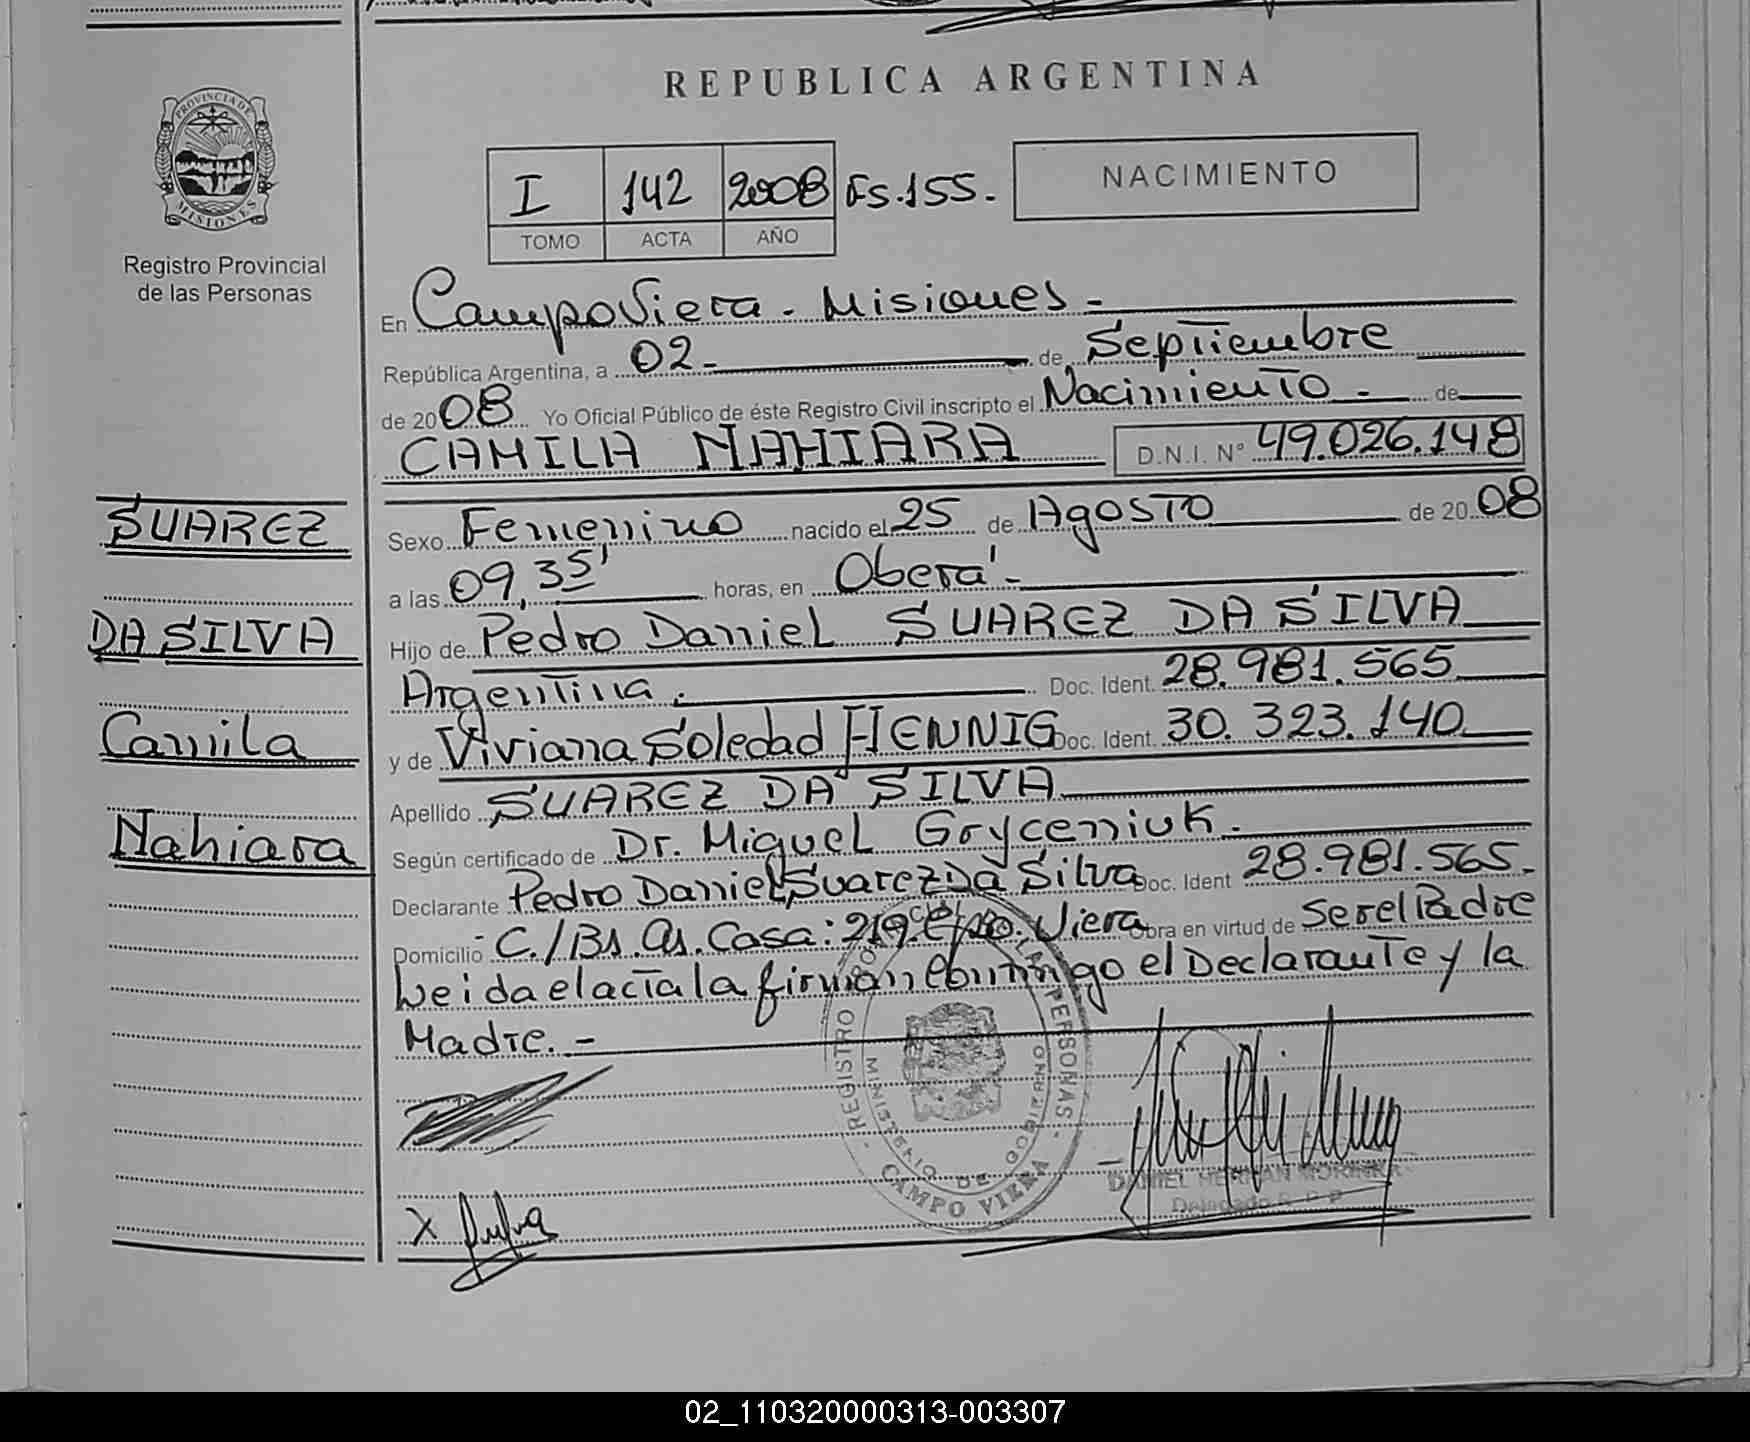 REPUBLICA ARGENTINA
PROVINCIA DE MISIONES
Registro Provincial
de las Personas
I 142 2008 Fs.155.
TOMO ACTA AÑO
NACIMIENTO
En Campo Viera - Misiones -
República Argentina, a 02 - de Septiembre
de 2008 Yo Oficial Público de éste Registro Civil inscripto el Nacimiento - de
CAMILA NAHIARA D.N.I. N° 49.026.148
SUAREZ
DA SILVA
Camila
Nahiara
Sexo Femenino nacido el 25 de Agosto de 2008
a las 09,35' horas, en Oberá -
Hijo de Pedro Daniel SUAREZ DA SILVA
Argentina. Doc. Ident. 28.981.565
y de Viviana Soledad HENNIG Doc. Ident. 30.323.140
Apellido SUAREZ DA SILVA
Según certificado de Dr. Miguel Gryceniuk.
Declarante Pedro Daniel Suarez Da Silva Doc. Ident 28.981.565.
Domicilio C./Bs. As. Casa: 219. C/po. Viera Obra en virtud de Ser el Padre
Leida el acta la firman Conmigo el Declarante y la
Madre. -
REGISTRO LAS PERSONAS
MINISTERIO DE GOBIERNO
CAMPO VIERA
X
DANIEL HERNAN
Delegado R. P. P.
02_110320000313-003307